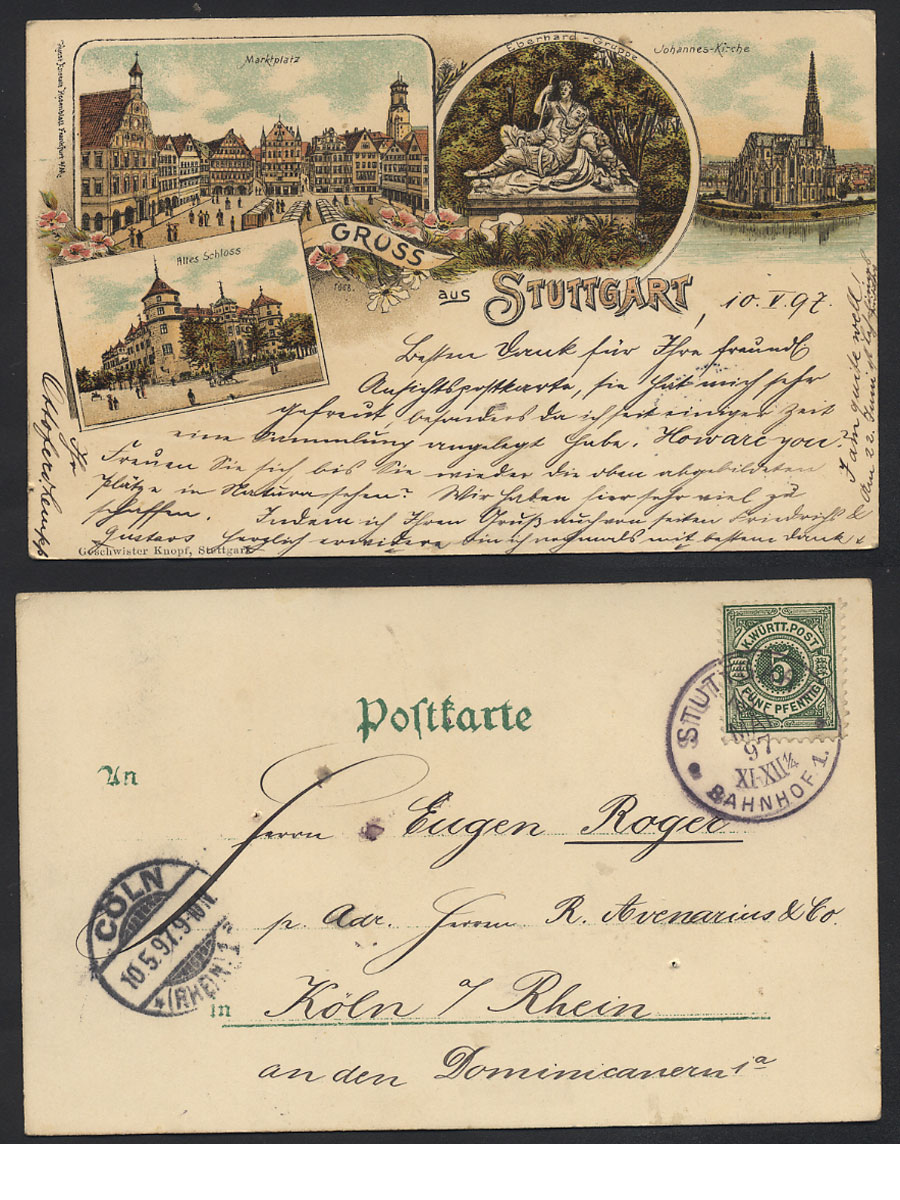 Marktplatz
Eberhard-Gruppe
Johannes-Kirche
Altes Schloss
GRUSS
aus STUTTGART
1668.
10. V. 97.
Besten Dank für Ihre freundl
Ansichtspostkarte, sie hat mich sehr
gefreut, besonders da ich seit einiger Zeit
eine Sammlung angelegt habe. How are you?
Freuen Sie sich bis Sie wieder die oben abgebildeten
Plätze in Natura sehen? Wir haben hier sehr viel zu
schaffen. Indem ich Ihren Gruß auch von seiten Friedrichs &
Gustavs herzlich erwidere bin ich nochmals mit bestem Dank &
Ihr
I am quite well
Am 22. Juni
Geschwister Knopf, Stuttgart
Postkarte
K. WÜRTT. POST
5
FÜNF PFENNIG
STUTT
97
XI-XII¼
BAHNHOF 1.
An
Herrn Eugen Roger
p. Adr. Herren R. Avenarius & Co.
in Köln / Rhein
an den Dominicanern 1a
CÖLN
10.5.97. 9-10 N.
* (RHEIN) 1 a